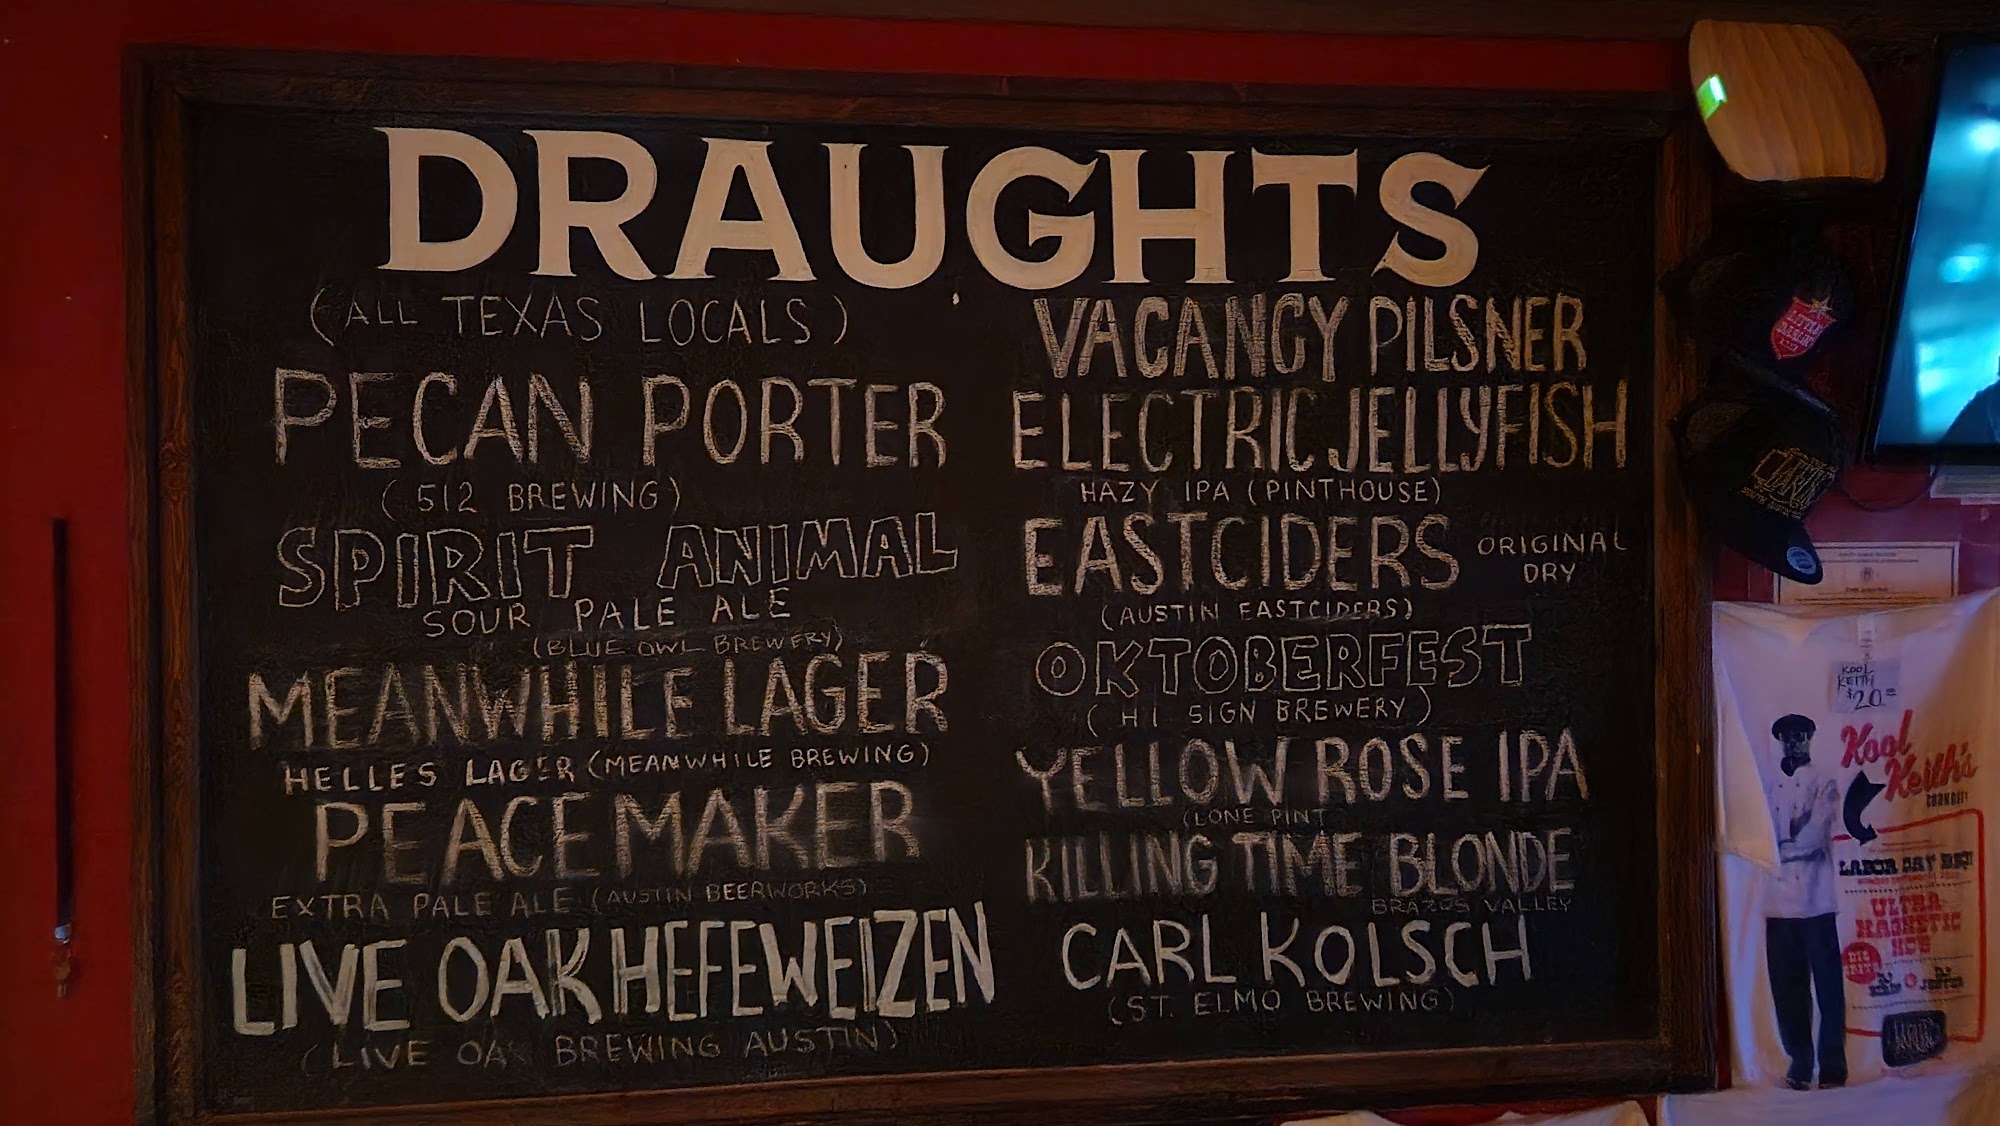 DRAUGHTS
(ALL TEXAS LOCALS)
PECAN PORTER
(512 BREWING)
SPIRIT ANIMAL
SOUR PALE ALE
(BLUE OWL BREWERY)
MEANWHILE LAGER
HELLES LAGER (MEANWHILE BREWING)
PEACEMAKER
EXTRA PALE ALE (AUSTIN BEERWORKS)
LIVE OAK HEFEWEIZEN
(LIVE OAK BREWING AUSTIN)
VACANCY PILSNER
ELECTRIC JELLYFISH
HAZY IPA (PINTHOUSE)
EASTCIDERS ORIGINAL
DRY
(AUSTIN EASTCIDERS)
OKTOBERFEST
(HI SIGN BREWERY)
YELLOW ROSE IPA
(LONE PINT
KILLING TIME BLONDE
BRAZOS VALLEY
CARL KOLSCH
(ST. ELMO BREWING)
KOOL
KEITH
$20
Kool
Keith's
LABOR DAY
ULTRA
MAGNETIC